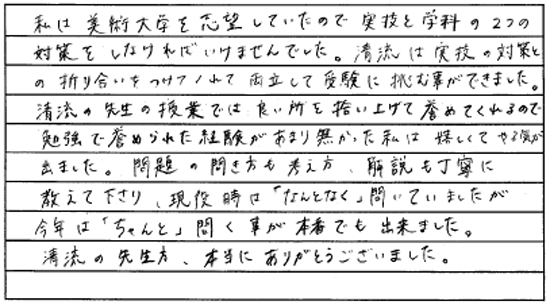 私は美術大学を志望していたので実技と学科の2つの
対策をしなければいけませんでした。清流は実技の対策と
の折り合いをつけてくれて両立して受験に挑む事ができました。
清流の先生の授業では良い所を拾い上げて誉めてくれるので
勉強で誉められた経験があまり無かった私は嬉しくてやる気が
出ました。問題の聞き方も考え方、解説も丁寧に
教えて下さり、現役時は「なんとなく」聞いていましたが
今年は「ちゃんと」聞く事が本番でも出来ました。
清流の先生方、本当にありがとうございました。